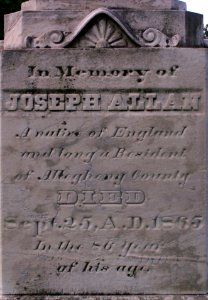 In Memory of
JOSEPH ALLAN
A native of England
and long a Resident
of Allegheny County
DIED
Sept. 25, A.D. 1865
In the 86 year
of his age.